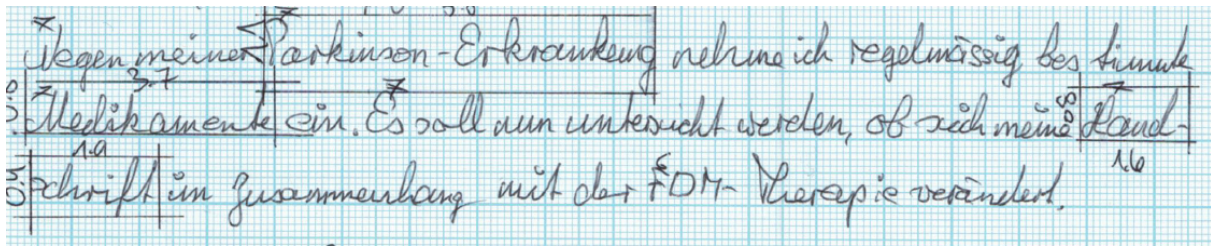 Wegen meiner Parkinson-Erkrankung nehme ich regelmässig bestimmte
3.7
Medikamente ein. Es soll nun untersucht werden, ob sich meine Hand-
1.9 1.6
schrift im Zusammenhang mit der FDM-Therapie verändert.